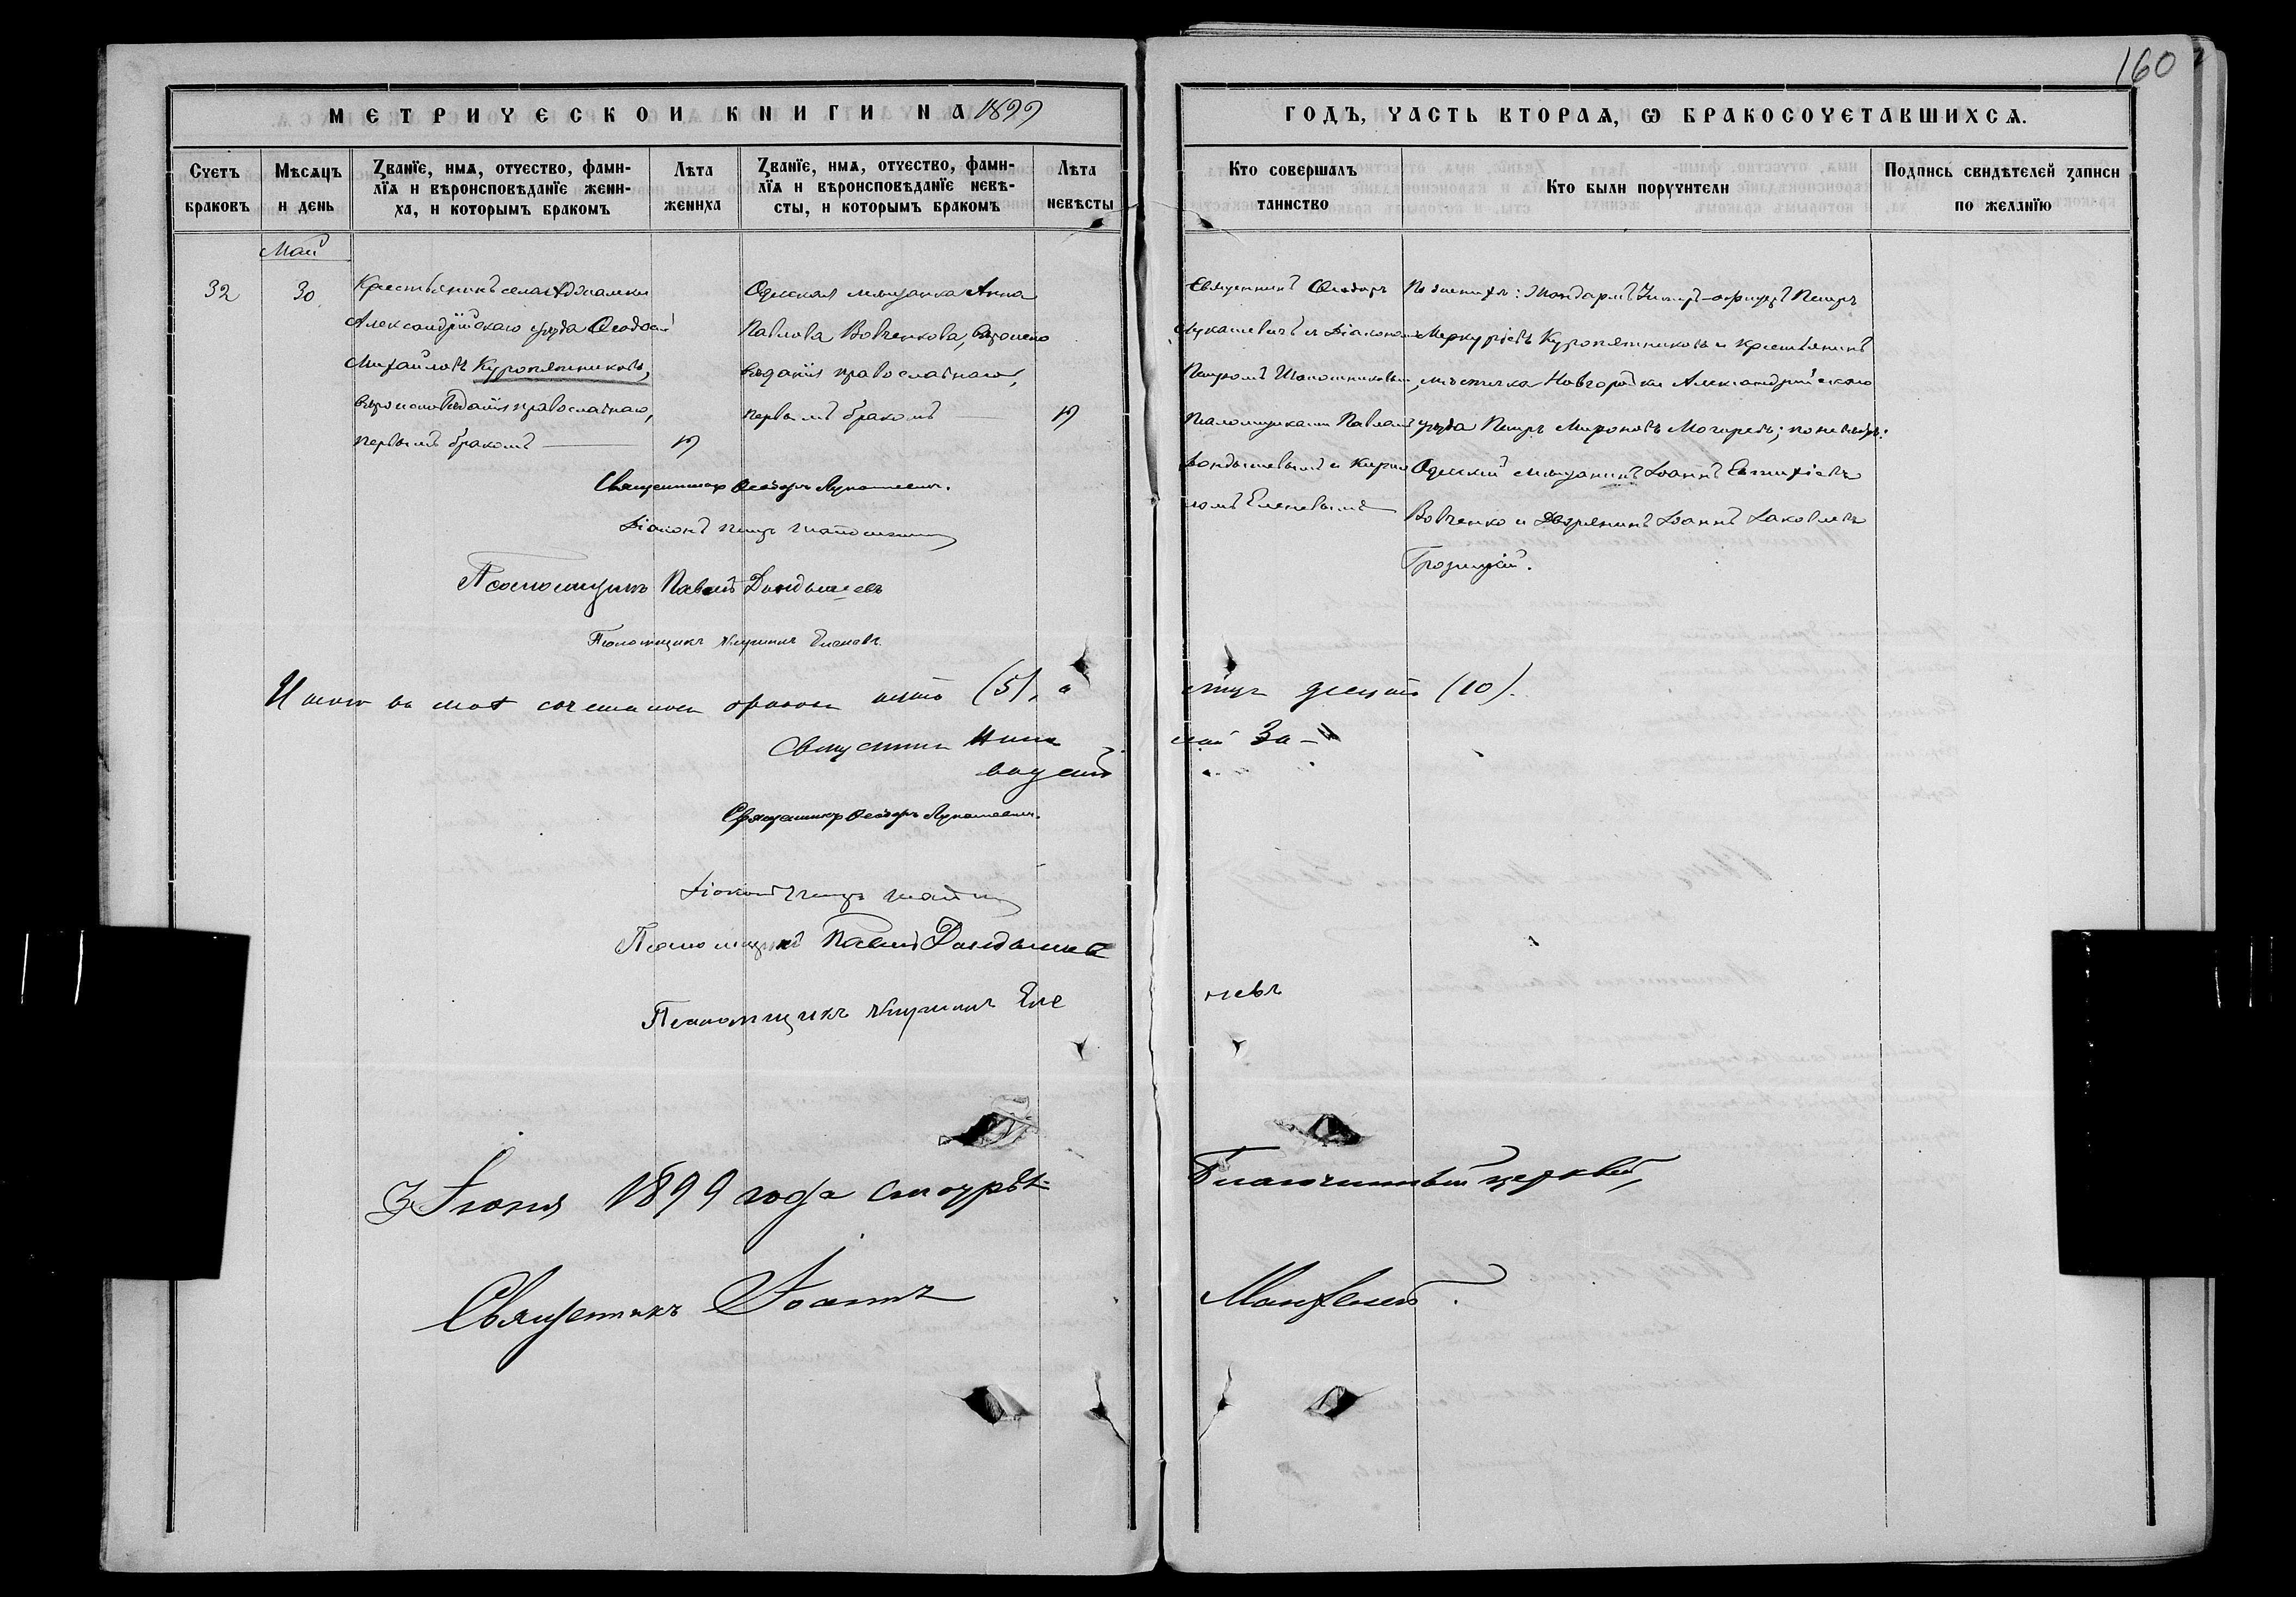 160
МЕТРИЧЕСКОЙ КНИГИ НА 1899
ГОДЪ, ЧАСТЬ ВТОРАЯ, Ѡ БРАКОСОЧЕТАВШИХСЯ.
Счетъ браковъ
Мѣсяцъ и день
Званїе, имя, отчество, фамилїя и вѣроисповѣданїе жениха, и которымъ бракомъ
Лѣта жениха
Званїе, имя, отчество, фамилїя и вѣроисповѣданїе невѣсты, и которымъ бракомъ
Лѣта невѣсты
Кто совершалъ таинство
Кто были поручители
Подпись свидѣтелей записи по желанїю
Май
32
30
Крестьянинъ села
Александрійскаго уѣзда Ѳеодосій
Михайловъ Куропятниковъ,
вѣроисповѣданія православнаго,
первымъ бракомъ
19
Одесская мѣщанка Анна
Павлова Вовченкова, вѣроиспо
вѣданія православнаго,
первымъ бракомъ
19
Священникъ Ѳеодоръ
Лукашевичъ съ Діакономъ
Петромъ Шапошниковымъ
Псаломщиками Павломъ
Дондышевымъ и Кирил
ломъ Еленевымъ
По женихѣ: Жандармъ Унтеръ-офицеръ Петръ
Меркуріевъ Куропятниковъ и крестьянинъ
мѣстечка Новгородки Александрійскаго
уѣзда Петръ Мироновъ ; по невѣстѣ:
Одесскій мѣщанинъ Іоаннъ Евтихіевъ
Вовченко и Дворянинъ Іоаннъ Іаковлевъ
Грозицкій.
Священникъ Ѳеодоръ Лукашевичъ.
Діаконъ Петръ
Псаломщикъ Павелъ Дондышевъ
Псаломщикъ Кириллъ Еленевъ
Итого въ маѣ сочеталось браковъ пять (5), а
лицъ десять (10).
Священникъ
Священникъ Ѳеодоръ Лукашевичъ.
Діаконъ Петръ
Псаломщикъ Павелъ Дондышевъ
Псаломщикъ Кириллъ Еле
невъ
3 Іюня 1899 года смотрѣлъ
Благочинный церквей,
Священникъ Іоаннъ